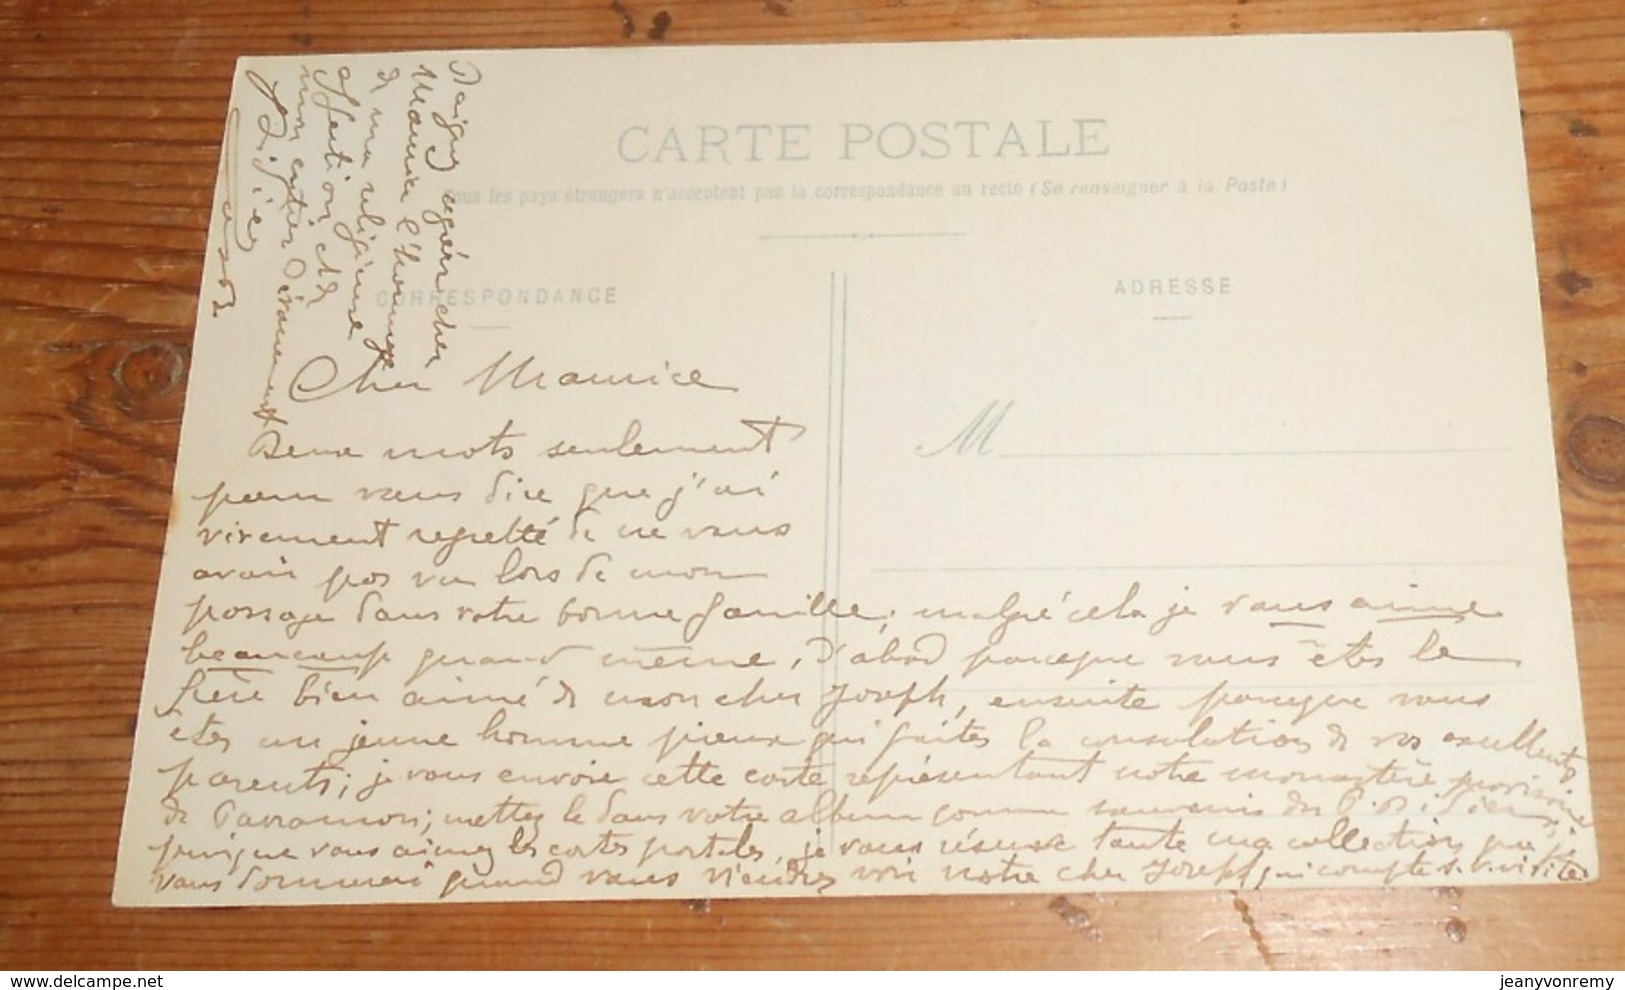 CARTE POSTALE
Tous les pays étrangers n'acceptent pas la correspondance au recto (Se renseigner à la Poste)
CORRESPONDANCE
ADRESSE
M
Cher Maurice
Deux mots seulement
pour vous dire que j'ai
vivement regretté de ne vous
avoir pas vu lors de mon
passage dans votre bonne famille; malgré cela je vous aime
beaucoup quand même, d'abord parceque vous êtes le
frère bien aimé de mon cher Joseph, ensuite parceque vous
êtes un jeune homme pieux qui faites la consolation de vos excellents
parents; je vous envoie cette carte représentant notre monastère provisoire
de mettez le dans votre album comme souvenir du
puisque vous aimez les cartes postales, je vous réserve toute ma collection que je
vous donnerai quand vous viendrez voir notre cher Joseph, qui compte s. v. visite
Daignez agréer cher
Maurice l'hommage
de ma religieuse
affection et de
mon entier dévouement